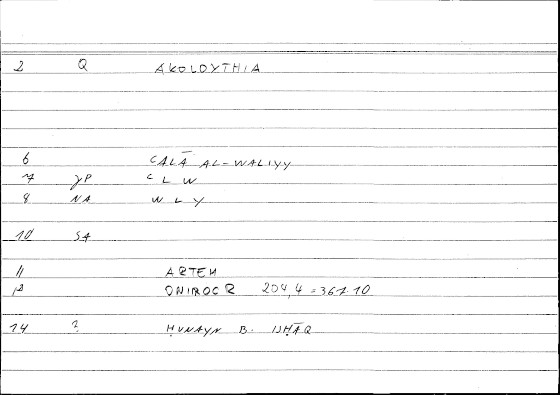 2 Q AKOLOYTHIA
6 CALĀ AL-WALIYY
7 γP C L W
8 NA W L Y
10 SA
11 ARTEM
12 ONIROCR 204,4 = 367.10
14 ? ḤUNAYN B. ISḤĀQ